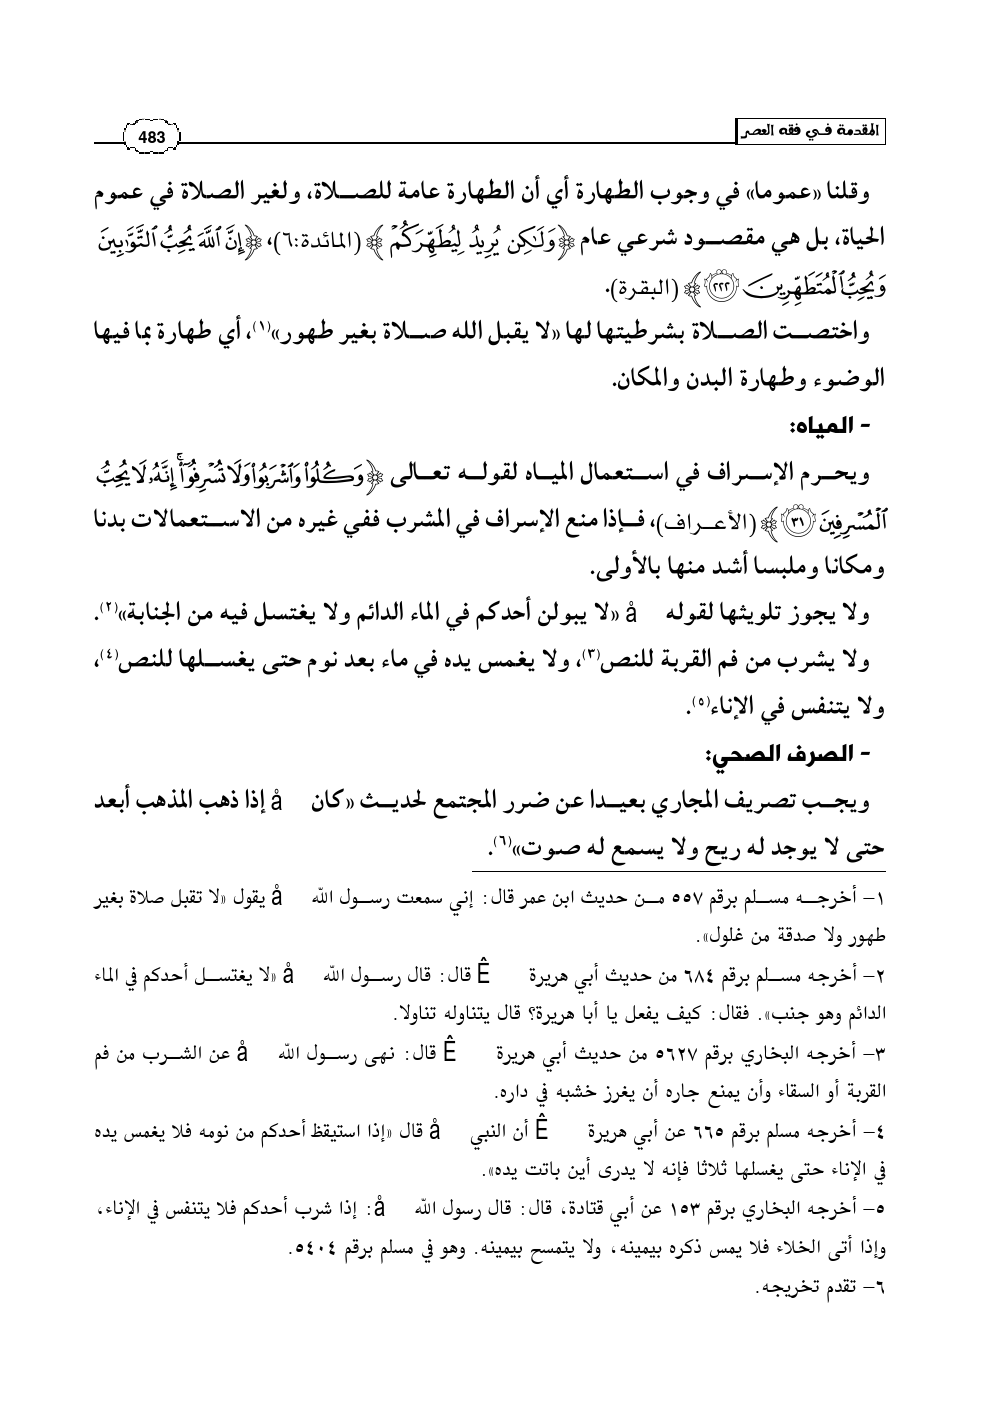 المقدمة في فقه العصر
483
وقلنا «عموما» في وجوب الطهارة أي أن الطهارة عامة للصلاة، ولغير الصلاة في عموم
الحياة، بل هي مقصود شرعي عام ﴿وَلَٰكِن يُرِيدُ لِيُطَهِّرَكُمْ﴾ (المائدة:٦)، ﴿إِنَّ ٱللَّهَ يُحِبُّ ٱلتَّوَّٰبِينَ
وَيُحِبُّ ٱلْمُتَطَهِّرِينَ ٢٢٢﴾ (البقرة).
واختصت الصلاة بشرطيتها لها «لا يقبل الله صلاة بغير طهور»(١)، أي طهارة بما فيها
الوضوء وطهارة البدن والمكان.
- المياه:
ويحرم الإسراف في استعمال المياه لقوله تعالى ﴿وَكُلُوا۟ وَٱشْرَبُوا۟ وَلَا تُسْرِفُوٓا۟ ۚ إِنَّهُۥ لَا يُحِبُّ
ٱلْمُسْرِفِينَ ٣١﴾ (الأعراف)، فإذا منع الإسراف في المشرب ففي غيره من الاستعمالات بدنا
ومكانا وملبسا أشد منها بالأولى.
ولا يجوز تلويثها لقوله å «لا يبولن أحدكم في الماء الدائم ولا يغتسل فيه من الجنابة»(٢).
ولا يشرب من فم القربة للنص(٣)، ولا يغمس يده في ماء بعد نوم حتى يغسلها للنص(٤)،
ولا يتنفس في الإناء(٥).
- الصرف الصحي:
ويجب تصريف المجاري بعيدا عن ضرر المجتمع لحديث «كان å إذا ذهب المذهب أبعد
حتى لا يوجد له ريح ولا يسمع له صوت»(٦).
١- أخرجه مسلم برقم ٥٥٧ من حديث ابن عمر قال: إني سمعت رسول الله å يقول «لا تقبل صلاة بغير
طهور ولا صدقة من غلول».
٢- أخرجه مسلم برقم ٦٨٤ من حديث أبي هريرة Ê قال: قال رسول الله å «لا يغتسل أحدكم في الماء
الدائم وهو جنب». فقال: كيف يفعل يا أبا هريرة؟ قال يتناوله تناولا.
٣- أخرجه البخاري برقم ٥٦٢٧ من حديث أبي هريرة Ê قال: نهى رسول الله å عن الشرب من فم
القربة أو السقاء وأن يمنع جاره أن يغرز خشبه في داره.
٤- أخرجه مسلم برقم ٦٦٥ عن أبي هريرة Ê أن النبي å قال «إذا استيقظ أحدكم من نومه فلا يغمس يده
في الإناء حتى يغسلها ثلاثا فإنه لا يدرى أين باتت يده».
٥- أخرجه البخاري برقم ١٥٣ عن أبي قتادة، قال: قال رسول الله å: إذا شرب أحدكم فلا يتنفس في الإناء،
وإذا أتى الخلاء فلا يمس ذكره بيمينه، ولا يتمسح بيمينه. وهو في مسلم برقم ٥٤٠٤.
٦- تقدم تخريجه.